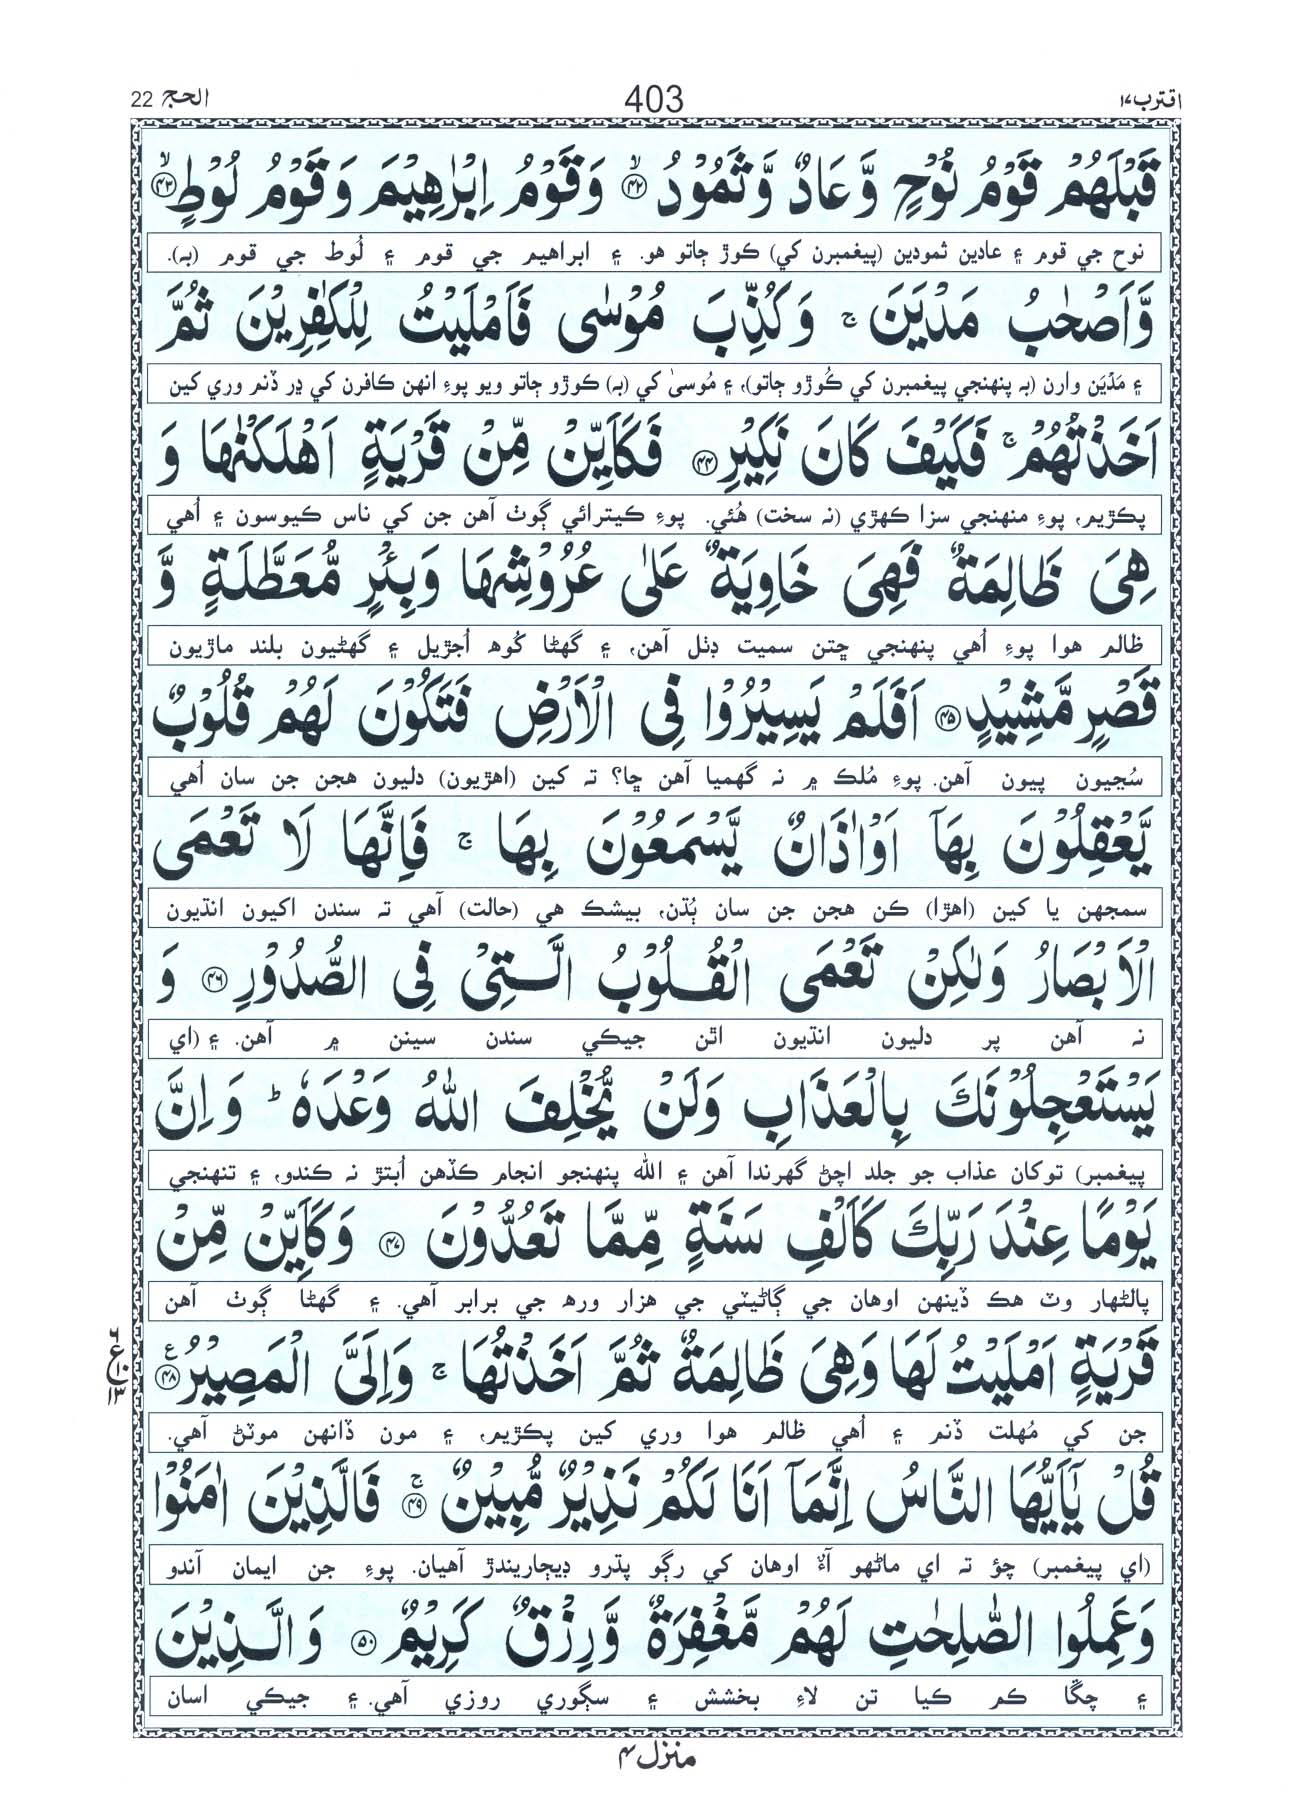 اقترب ١٧
403
الحج 22
قَبْلَهُمْ قَوْمُ نُوْحٍ وَّ عَادٌ وَّ ثَمُوْدُ ۙ﴿۴۲﴾ وَ قَوْمُ اِبْرٰهِيْمَ وَ قَوْمُ لُوْطٍ ۙ﴿۴۳﴾
نوح جي قوم ۽ عادين ثمودين (پيغمبرن کي) ڪوڙ ڄاتو هو. ۽ ابراهيم جي قوم ۽ لُوط جي قوم (به).
وَّ اَصْحٰبُ مَدْيَنَ ۚ وَ كُذِّبَ مُوْسٰى فَاَمْلَيْتُ لِلْكٰفِرِيْنَ ثُمَّ
۽ مَدْيَن وارن (به پنهنجي پيغمبرن کي ڪُوڙو ڄاتو)، ۽ مُوسىٰ کي (به) ڪوڙو ڄاتو ويو پوءِ انهن ڪافرن کي ڍر ڏنم وري کين
اَخَذْتُهُمْ ۚ فَكَيْفَ كَانَ نَكِيْرِ ﴿۴۴﴾ فَكَاَيِّنْ مِّنْ قَرْيَةٍ اَهْلَكْنٰهَا وَ
پڪڙيم، پوءِ منهنجي سزا ڪهڙي (نه سخت) هُئي. پوءِ ڪيترائي ڳوٺ آهن جن کي ناس ڪيوسون ۽ اُهي
هِىَ ظَالِمَةٌ فَهِىَ خَاوِيَةٌ عَلٰى عُرُوْشِهَا وَ بِئْرٍ مُّعَطَّلَةٍ وَّ
ظالم هوا پوءِ اُهي پنهنجي ڇتن سميت ڊٺل آهن، ۽ گهڻا کُوهه اُجڙيل ۽ گهڻيون بلند ماڙيون
قَصْرٍ مَّشِيْدٍ ﴿۴۵﴾ اَفَلَمْ يَسِيْرُوْا فِى الْاَرْضِ فَتَكُوْنَ لَهُمْ قُلُوْبٌ
سُڃيون پييون آهن. پوءِ مُلڪ ۾ نه گهميا آهن ڇا؟ ته کين (اهڙيون) دليون هجن جن سان اُهي
يَّعْقِلُوْنَ بِهَآ اَوْ اٰذَانٌ يَّسْمَعُوْنَ بِهَا ۚ فَاِنَّهَا لَا تَعْمَى
سمجهن يا کين (اهڙا) ڪن هجن جن سان ٻُڌن، بيشڪ هي (حالت) آهي ته سندن اکيون انڌيون
الْاَبْصَارُ وَلٰكِنْ تَعْمَى الْقُلُوْبُ الَّتِىْ فِى الصُّدُوْرِ ﴿۴۶﴾ وَ
نہ آهن پر دليون انڌيون اٿن جيڪي سندن سينن ۾ آهن. ۽ (اي
يَسْتَعْجِلُوْنَكَ بِالْعَذَابِ وَلَنْ يُّخْلِفَ اللّٰهُ وَعْدَهٗ ؕ وَ اِنَّ
پيغمبر) توکان عذاب جو جلد اچڻ گهرندا آهن ۽ الله پنهنجو انجام ڪڏهن اُبتڙ نه ڪندو، ۽ تنهنجي
يَوْمًا عِنْدَ رَبِّكَ كَاَلْفِ سَنَةٍ مِّمَّا تَعُدُّوْنَ ﴿۴۷﴾ وَكَاَيِّنْ مِّنْ
پالڻهار وٽ هڪ ڏينهن اوهان جي ڳاڻيٽي جي هزار ورهه جي برابر آهي. ۽ گهڻا ڳوٺ آهن
قَرْيَةٍ اَمْلَيْتُ لَهَا وَ هِىَ ظَالِمَةٌ ثُمَّ اَخَذْتُهَا ۚ وَ اِلَىَّ الْمَصِيْرُ ﴿۴۸﴾ ع
جن کي مُهلت ڏنم ۽ اُهي ظالم هوا وري کين پڪڙيم، ۽ مون ڏانهن موٽڻ آهي.
قُلْ يٰٓاَيُّهَا النَّاسُ اِنَّمَآ اَنَا لَكُمْ نَذِيْرٌ مُّبِيْنٌ ۚ﴿۴۹﴾ فَالَّذِيْنَ اٰمَنُوْا
(اي پيغمبر) چؤ ته اي ماڻهو آءٌ اوهان کي رڳو پڌرو ڊيڄاريندڙ آهيان. پوءِ جن ايمان آندو
وَ عَمِلُوا الصّٰلِحٰتِ لَهُمْ مَّغْفِرَةٌ وَّ رِزْقٌ كَرِيْمٌ ﴿۵۰﴾ وَ الَّذِيْنَ
۽ چڱا ڪم ڪيا تن لاءِ بخشش ۽ سڳوري روزي آهي. ۽ جيڪي اسان
منزل ۴